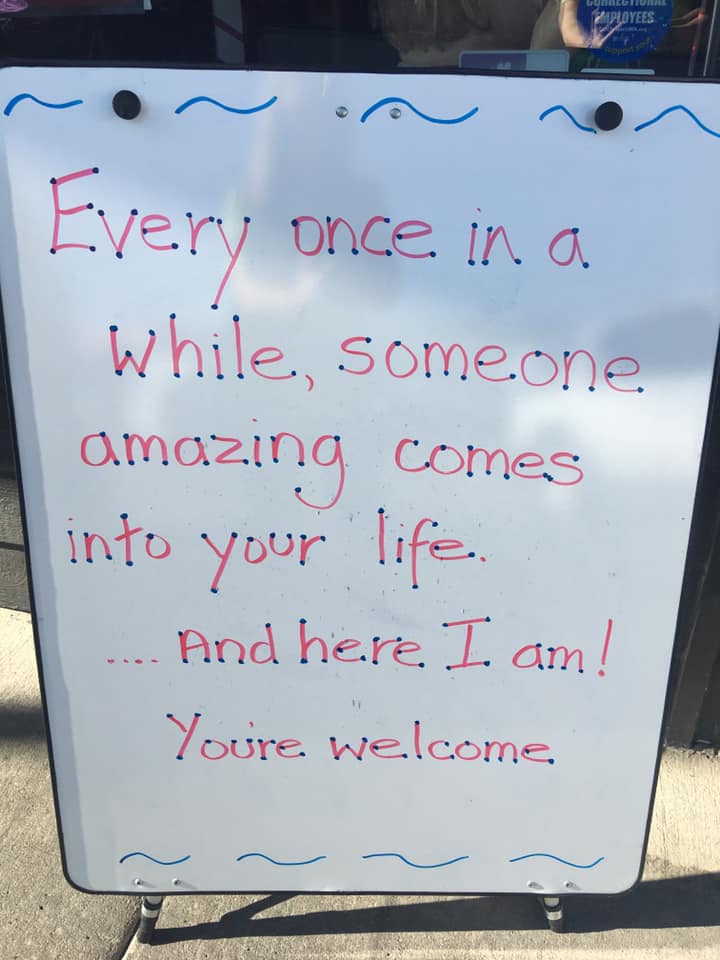 CORRECTIONAL
EMPLOYEES
support your
Every once in a
while, someone
amazing comes
into your life.
.... And here I am!
You're welcome